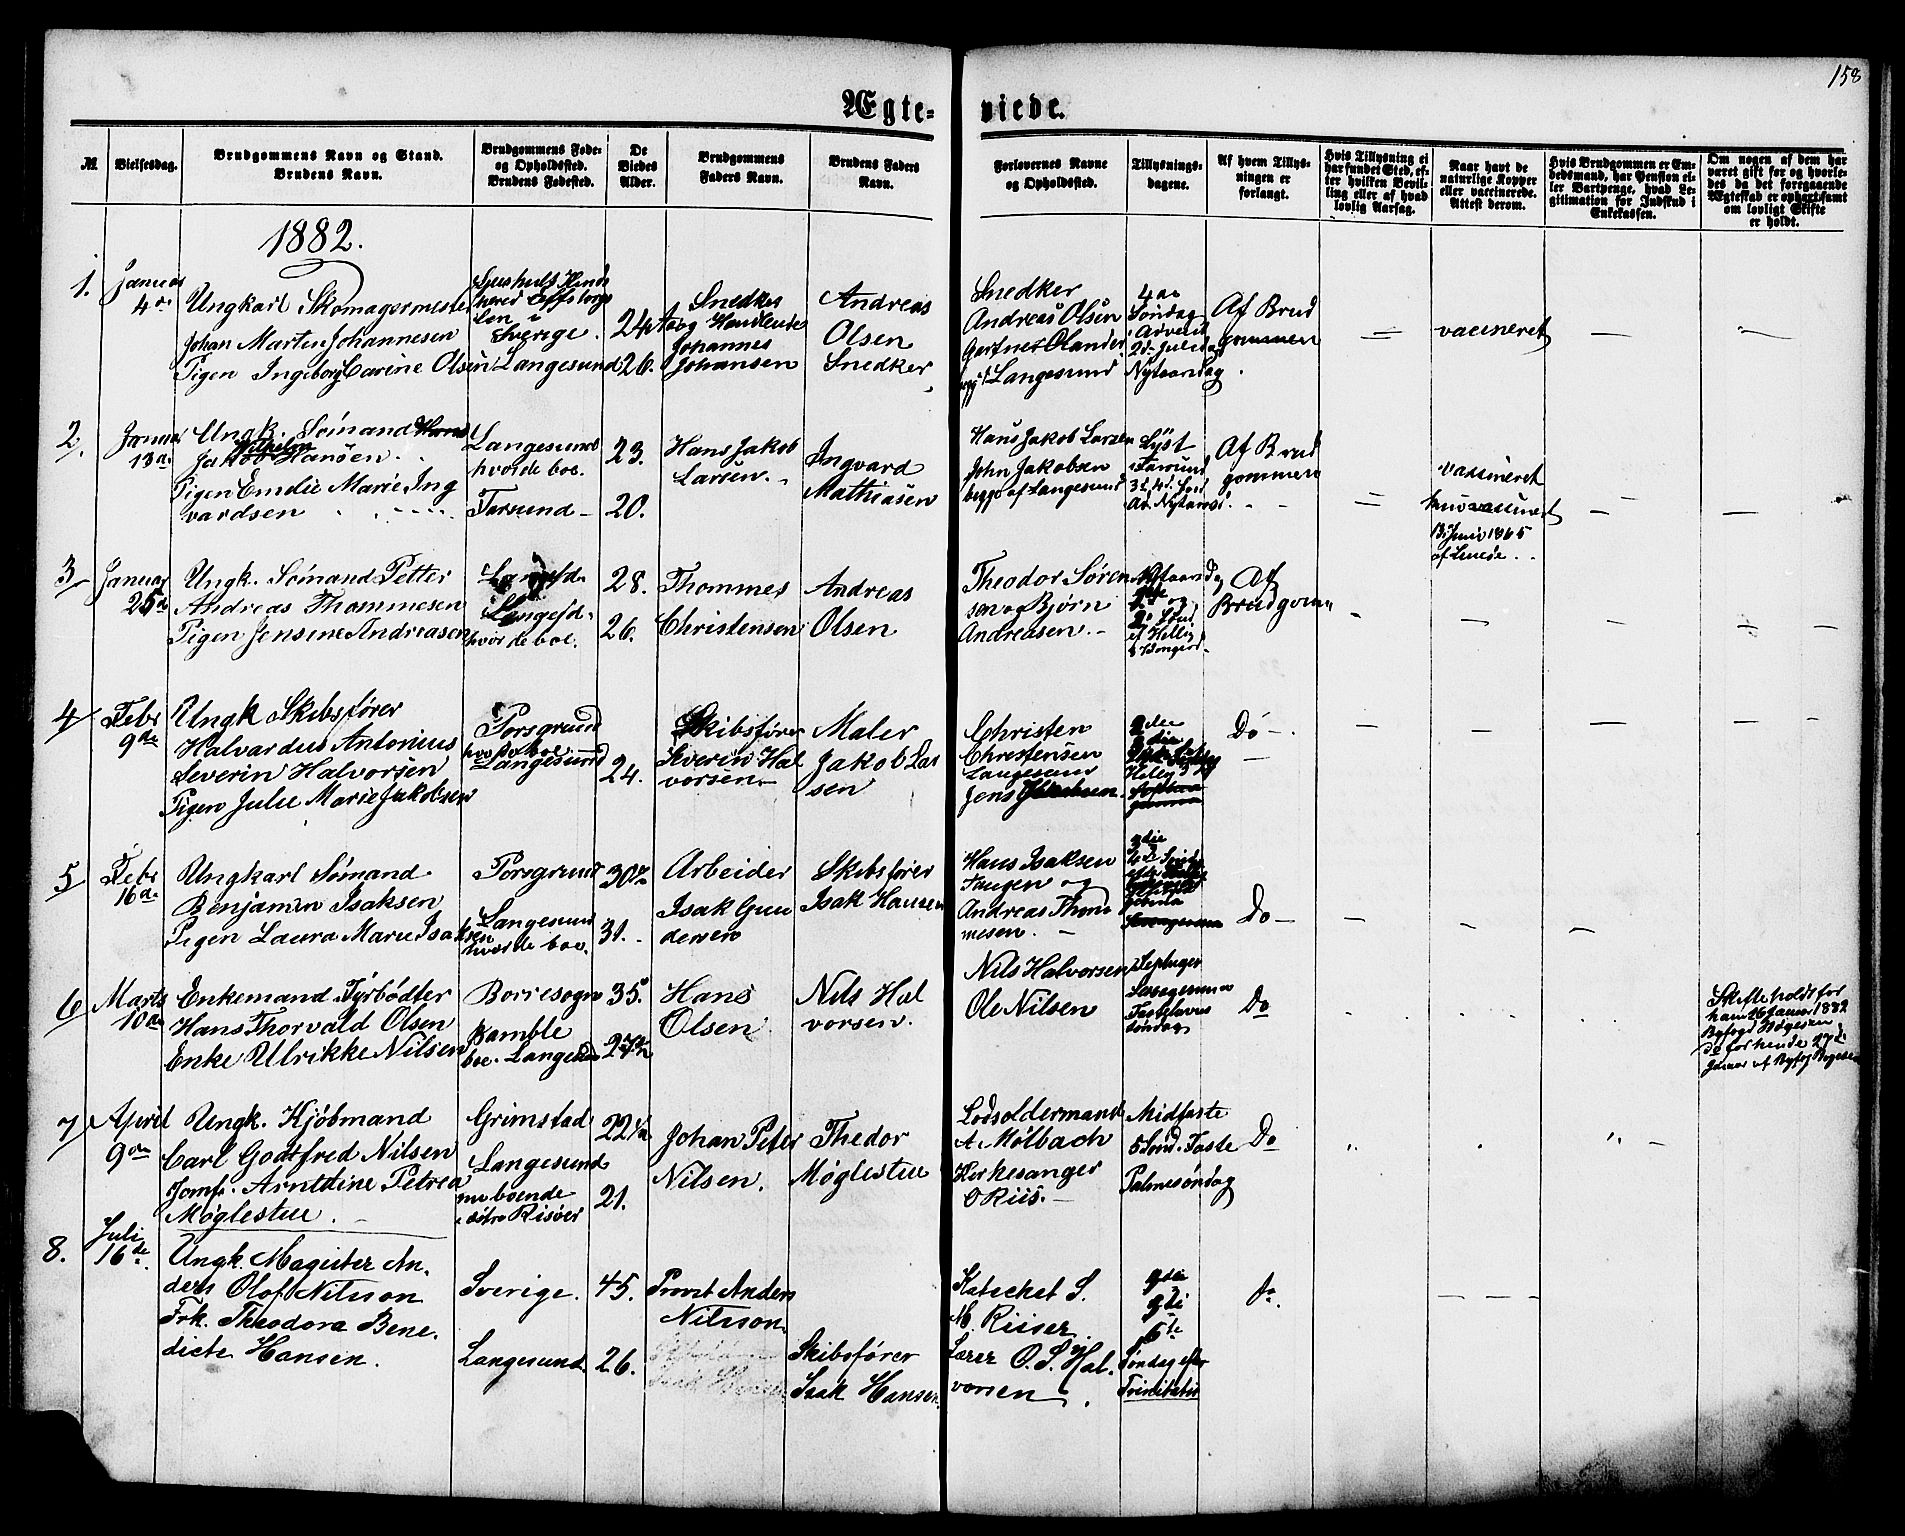 158
Ægte-
viede.
№
Vielsesdag.
Brudgommens Navn og Stand.
Brudens Navn.
Brudgommens Føde-
og Opholdssted.
Brudens Fødested.
De
Viedes
Alder.
Brudgommens
Faders Navn.
Brudens Faders
Navn.
Forlovernes Navne
og Opholdssted.
Tillysnings-
dagene.
Af hvem Tillys-
ningen er
forlangt.
Hvis Tillysning ei
har fundet Sted, ef-
ter hvilken Bevil-
ling eller af hvad
lovlig Aarsag.
Naar havt de
naturlige Kopper
eller vaccinerede.
Attest derom.
Hvis Brudgommen er Em-
bedsmand, har Pension el-
ler Vartpenge, hvad Le-
gitimation for Indskud i
Enkekassen.
Om nogen af dem har
været gift før og hvorle-
des da det foregaaende
Ægteskab er ophørt, samt
om lovligt Skifte
er holdt.
1882.
1.
Januar
4de
Ungkarl Skomagermester
Johan Martin Johannesen
Pigen Ingeborg Carine Olsen
Sverige.
Langesund
24
26.
Snedker
og Handlende
Johannes
Johansen
Andreas
Olsen
Snedker
Snedker
Andreas Olsen
Gartner Olander
Langesund
4de
Søndag
i Advent
2d. Juledag
Nytaarsdag
Af Brud
gommen
vaccineret
2.
Januar
13de
Ungk. Sømand Hans
Wilhelm
Jakob Hansen
Pigen Emilie Marie Ing
vardsen
Langesund
hvor de boe.
Farsund
23.
20.
Hans Jakob
Larsen.
Ingvard
Mathiasen
Hans Jakob Larsen
John Jakobsen
begge af Langesund
Lyst
i Farsund
Af Brud
gommen
vaccineret
vaccineret
Juni 1865
3
Januar
25de
Ungk. Sømand Petter
Andreas Thommesen
Pigen Jensine Andreasen
Langesd.
Langesd.
hvor de boe.
28.
26.
Thommes
Christensen
Andreas
Olsen
Theodor Søren
sen og Bjørn
Andreasen.
Nytaarsdag
Af
Brudgom
4
Febr
9de
Ungk Skibsfører
Halvardus Antonius
Severin Halvorsen
Pigen Julie Marie Jakobsen
Porsgrund
hvor de boe
Langesund
24.
Skibsfører
Severin Hal
vorsen
Maler
Jakob Lar
sen
Christen
Christensen
Langesund
Jens Jakobsen
Do
5
Febr
16de
Ungkarl Sømand
Benjamin Isaksen
Pigen Laura Marie Isaksen
Porsgrund
Langesund
hvor de boe.
30
31.
Arbeider
Isak Gun
dersen
Skibsfører
Isak Hansen
Hans Isaksen
Tangen og
Andreas Thom
mesen.
Do
6
Marts
10de
Enkemand Fyrbødter
Hans Thorvald Olsen
Enke Ulrikke Nilsen
Borresogn
Bamble
boe. Langesd
35.
27
Hans
Olsen
Nils Hal
vorsen.
Nils Halvorsen
Ole Nilsen
Septuages
Sexagesima
Fastelavns
søndag
Do
Skifte holdt for
ham 26 Januar 1882
7
April
9de
Ungk. Kjøbmand
Carl Godtfred Nilsen
Jomf. Arntdine Petrea
Møglestue
Grimstad
Langesund
nu boende
i østre Risøer
22
21.
Johan Peter
Nilsen.
Thedor
Møglestue
Lodsoldermand
A. Mølbach
Kirkesanger
O Riis.
Midfaste
5 Sønd. Faste
Palmesøndag
Do
8.
Juli
16de
Ungk. Magister An-
ders Olof Nilsson
Frk. Theodora Bene-
dicte Hansen.
Sverige.
Langesund.
45.
26.
Provst Anders
Nilsson.
Skibsfører
Isak Hansen.
Kateket S.
M. Riiser
Lærer O. S. Hal-
vorsen
Søndag efter
Trinitatis
Do.